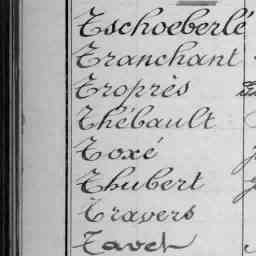 Tschoeberlé
Tranchant
Troprès
Thébault
Toxé
Thubert
Travers
Tavet